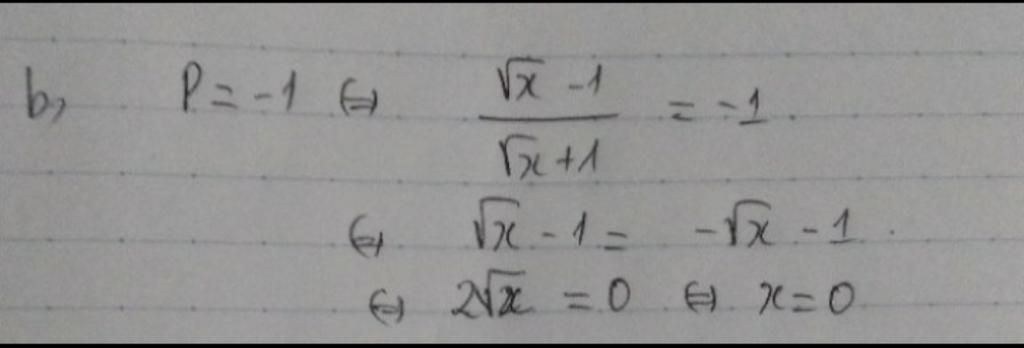 b, P = -1 ⇔ (√x - 1)/(√x + 1) = -1.
⇔ √x - 1 = -√x - 1.
⇔ 2√x = 0 ⇔ x = 0